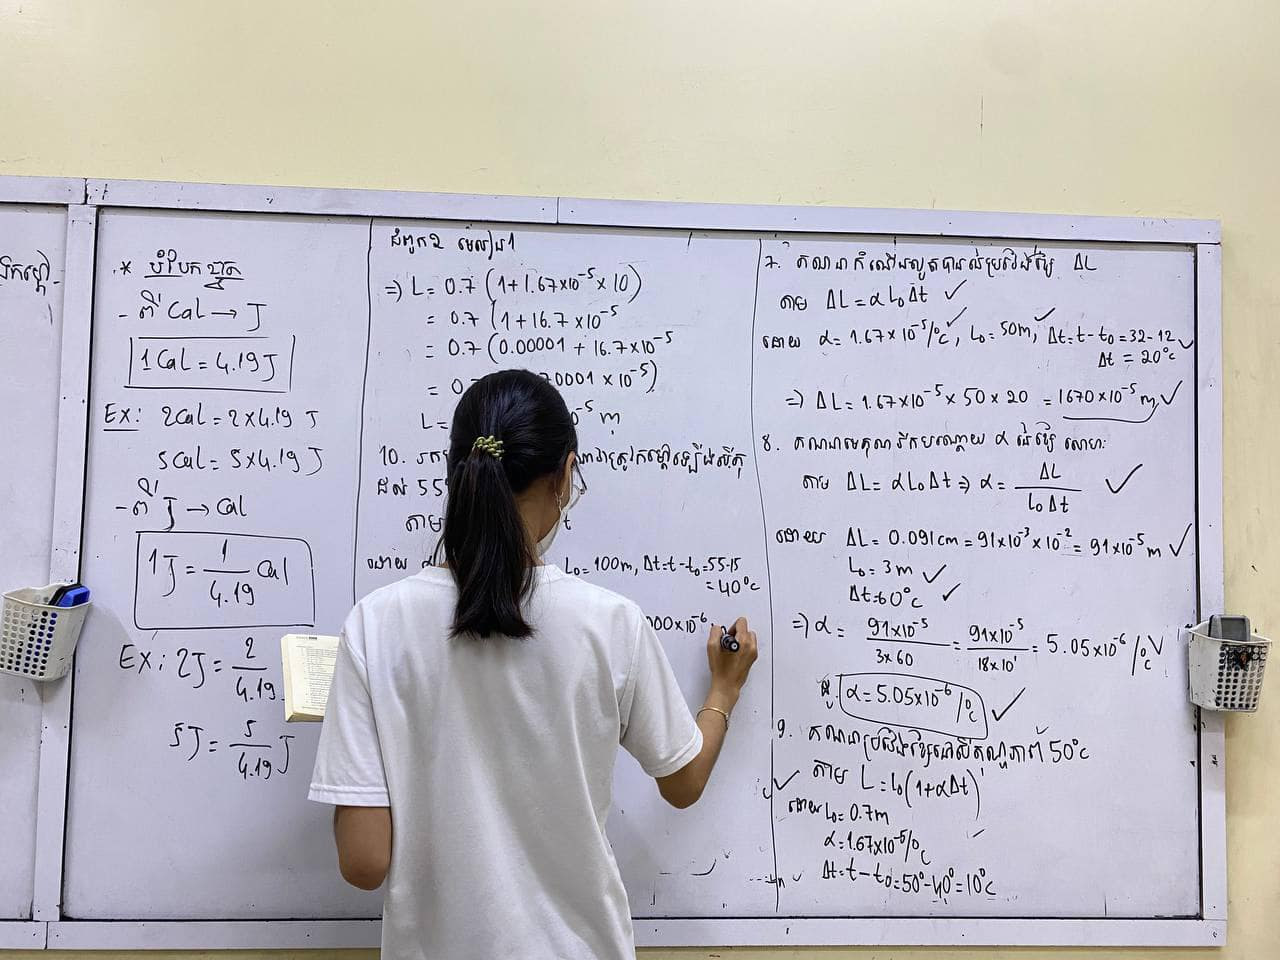 * បំបែកខ្នាត
- ពី Cal → J
1 Cal = 4.19 J
EX: 2Cal = 2 x 4.19 J
5Cal = 5 x 4.19 J
- ពី J → Cal
1J = 1/4.19 Cal
EX: 2J = 2/4.19
5J = 5/4.19 J
ជំពូក2 មេរៀន1
=> L = 0.7 (1 + 1.67x10⁻⁵ x 10)
= 0.7 (1 + 16.7 x10⁻⁵
= 0.7 (0.00001 + 16.7x10⁻⁵
= 0. 70001 x 10⁻⁵)
L= ⁻⁵ m
10.
ដល់ 55
តាម t
ដោយ L₀ = 100m, Δt = t - t₀ = 55-15
= 40°C
000x10⁻⁶
7. គណនាកំណើន ΔL
តាម ΔL = αL₀Δt ✓
ដោយ α = 1.67x10⁻⁵/°C, L₀ = 50m, Δt = t - t₀ = 32-12
Δt = 20°C
=> ΔL = 1.67x10⁻⁵ x 50 x 20 = 1670x10⁻⁵ m ✓
8. គណនាមេគុណរីកបណ្តោយ α នៃ លោហៈ
តាម ΔL = αL₀Δt => α = ΔL/L₀Δt ✓
ដោយ ΔL = 0.091cm = 91x10⁻³x10⁻² = 91x10⁻⁵m ✓
L₀ = 3m ✓
Δt = 60°C ✓
=> α = 91x10⁻⁵/3x60 = 91x10⁻⁵/18x10¹ = 5.05x10⁻⁶/°C ✓
α = 5.05x10⁻⁶/°C ✓
9. គណនាប្រវែងខ្សែ 50°C
តាម L = L₀(1+αΔt)
ដោយ L₀ = 0.7m
α = 1.67x10⁻⁵/°C
Δt = t - t₀ = 50° - 40° = 10°C